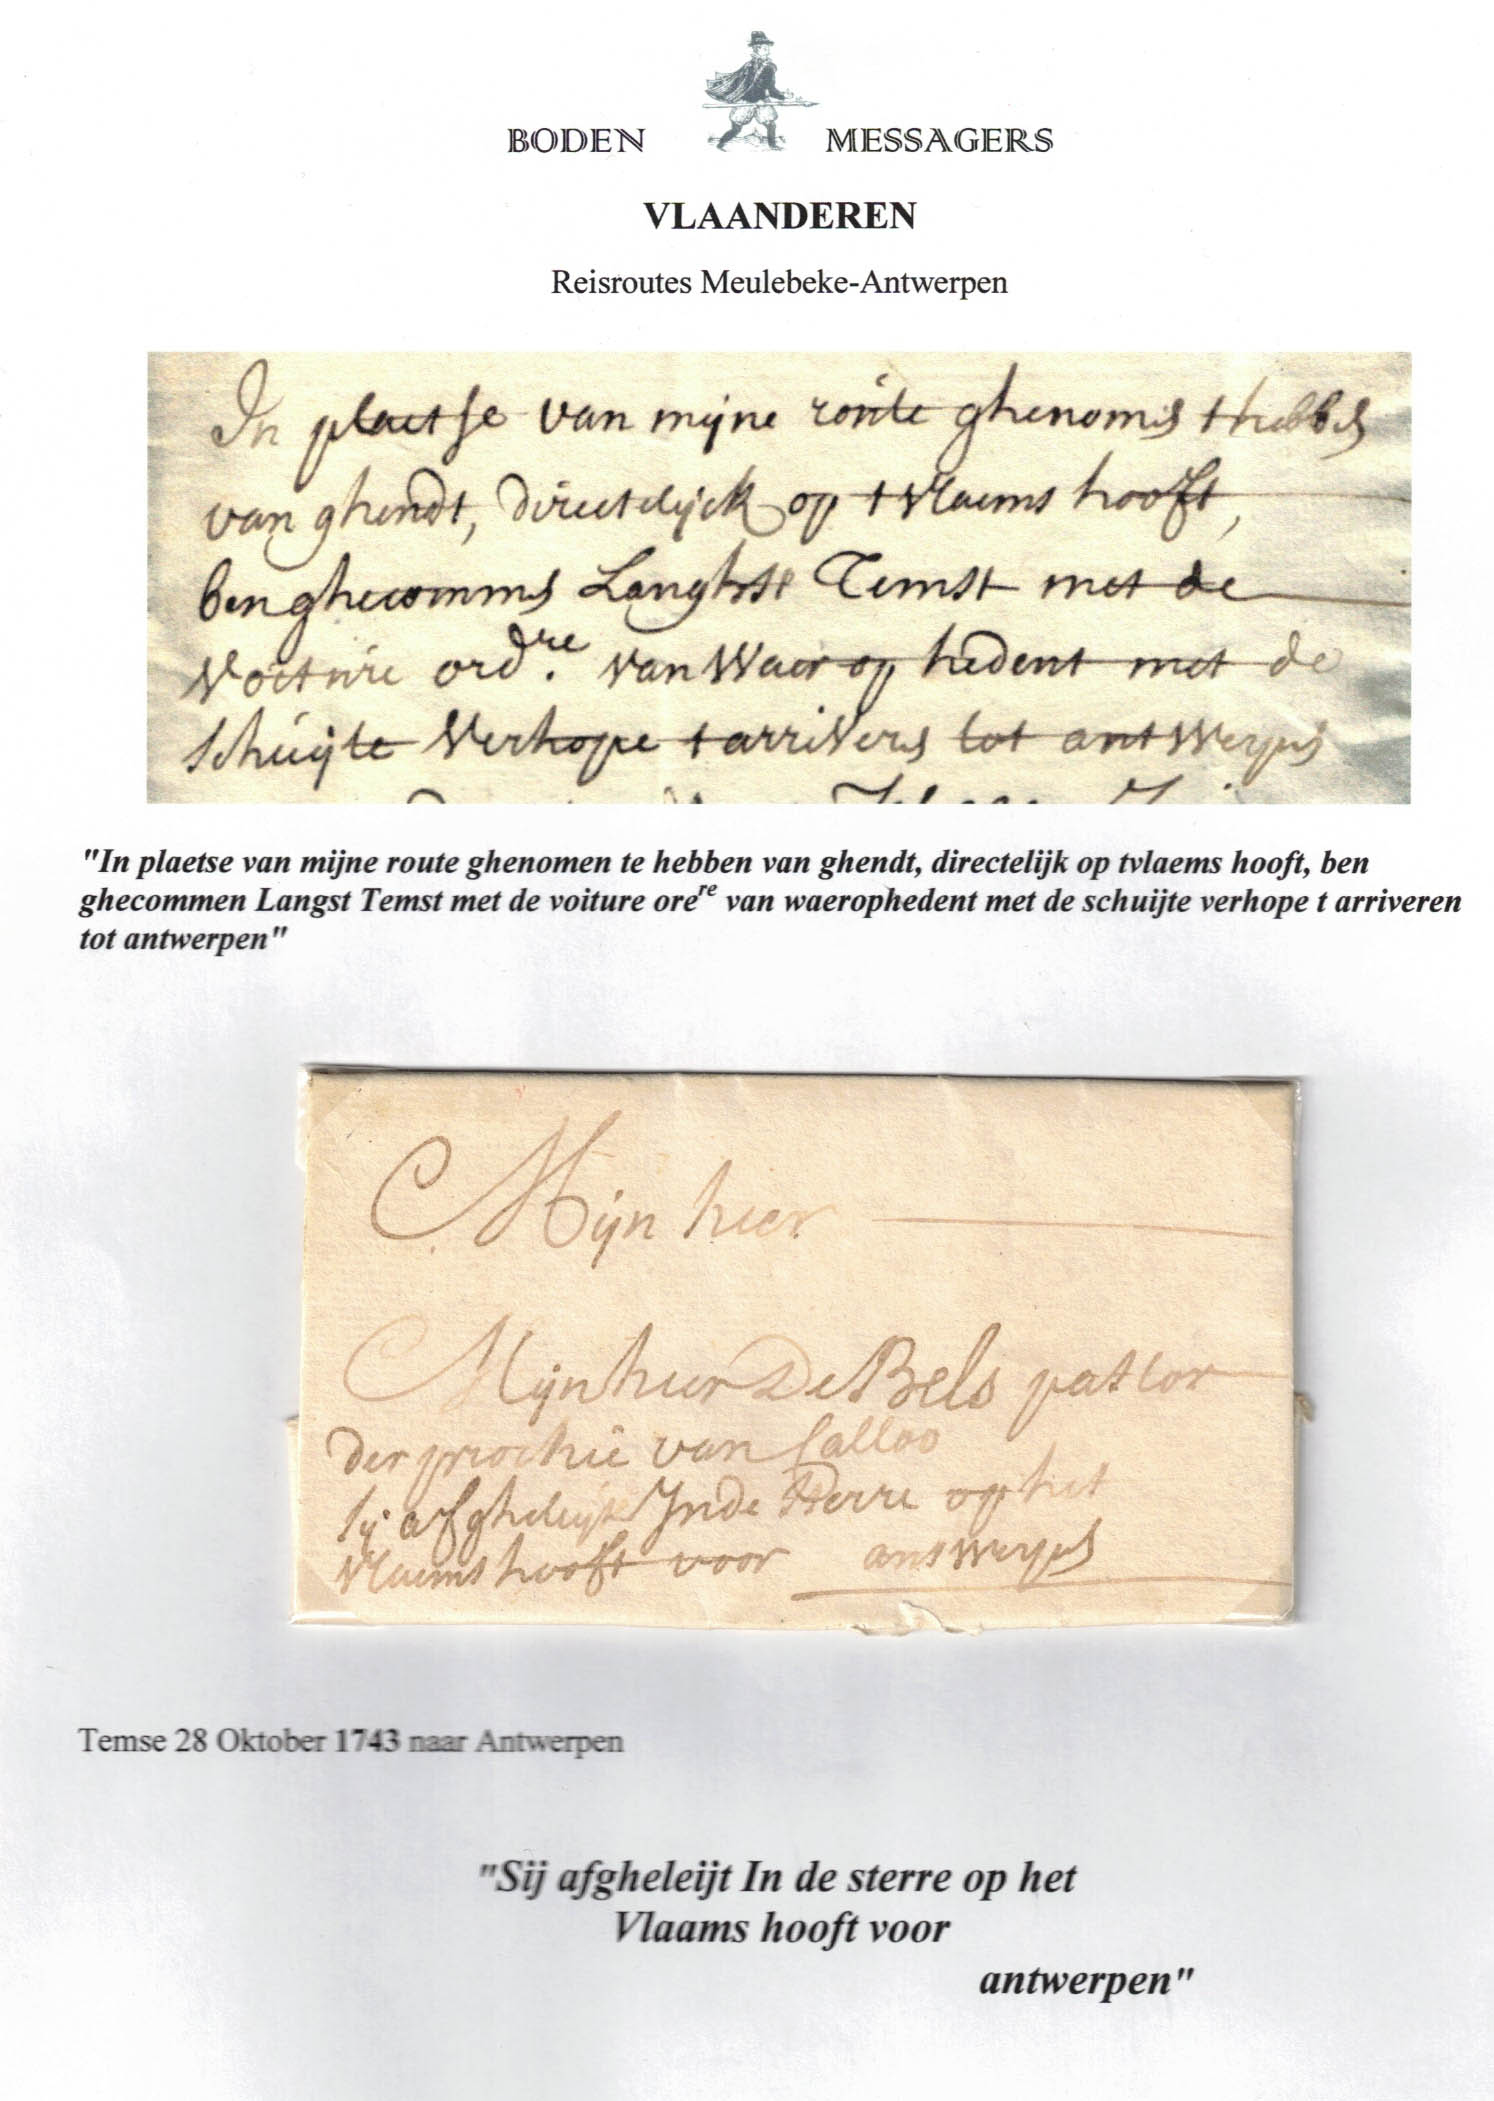 BODEN MESSAGERS
VLAANDEREN
Reisroutes Meulebeke-Antwerpen
In plaetse van mijne route ghenomen t hebben
van ghendt, directelijck op t vlaems hooft,
ben ghecommen Langhst Temst met de
Voiture ord.re van Waer op hedent met de
schuijte Verhope t arriveren tot antwerpen
"In plaetse van mijne route ghenomen te hebben van ghendt, directelijk op tvlaems hooft, ben
ghecommen Langst Temst met de voiture orere van waerophedent met de schuijte verhope t arriveren
tot antwerpen"
Mijn heer
Mijn heer De Bels pastor
der prochie van Calloo
sij afgheleijt Inde sterre op het
vlaems hooft voor antwerpen
Temse 28 Oktober 1743 naar Antwerpen
"Sij afgheleijt In de sterre op het
Vlaams hooft voor
antwerpen"